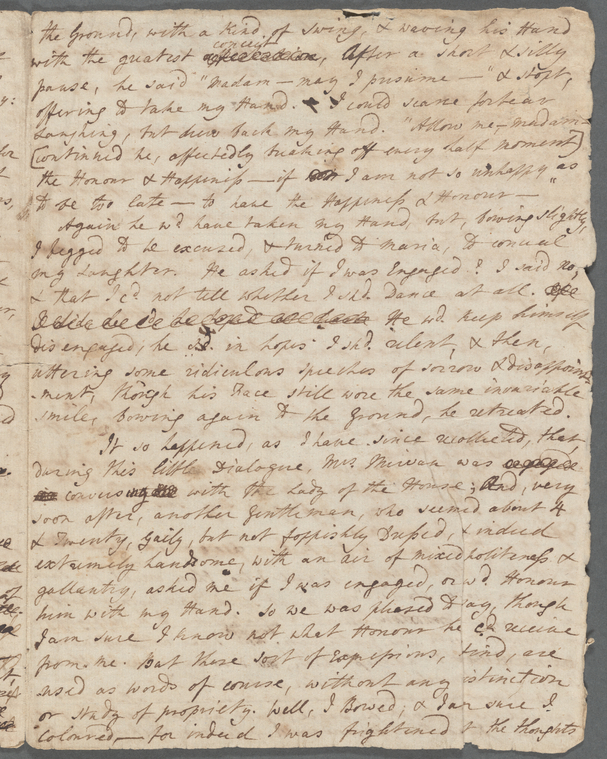 the Ground, with a kind of swing, & waving his Hand
conceit
with the greatest affectation, After a short & silly
pause, he said "Madam — may I presume —" & stopt,
offering to take my Hand. I could scarce forbear
Laughing, but drew back my Hand. "Allow me, Madam —
(continued he, affectedly breaking off every half moment)
the Honour & Happiness — if I am not so unhappy as
to be too late — to have the Happiness & Honour — "
Again he wd. have taken my Hand, but, bowing slightly,
I begged to be excused, & turned to Maria, to conceal
my Laughter. He asked if I was Engaged? I said no,
& that I cd. not tell whether I shd. Dance at all.
He wd. keep himself
disengaged, he sd. in hopes I shd. relent, & then,
uttering some ridiculous speeches of sorrow & disappoint
-ment, though his Face still wore the same invariable
smile, Bowing again to the Ground, he retreated.
It so happened, as I have since recollected, that
during this little Dialogue, Mrs. Mirvan was
conversing with the Lady of the House; And, very
soon after, another Gentleman, who seemed about 4
& Twenty, Gaily, but not foppishly Dressed, & indeed
extremely handsome, with an air of mixed politeness &
gallantry, asked me if I was engaged, or wd. Honour
him with my Hand. So he was pleased to say, though
I am sure I know not what Honour he cd. receive
from me. But these sort of Expressions, I find, are
used as words of course, without any distinction
or study of propriety. Well, I Bowed, & I am sure I
coloured, — for indeed I was frightened at the thoughts